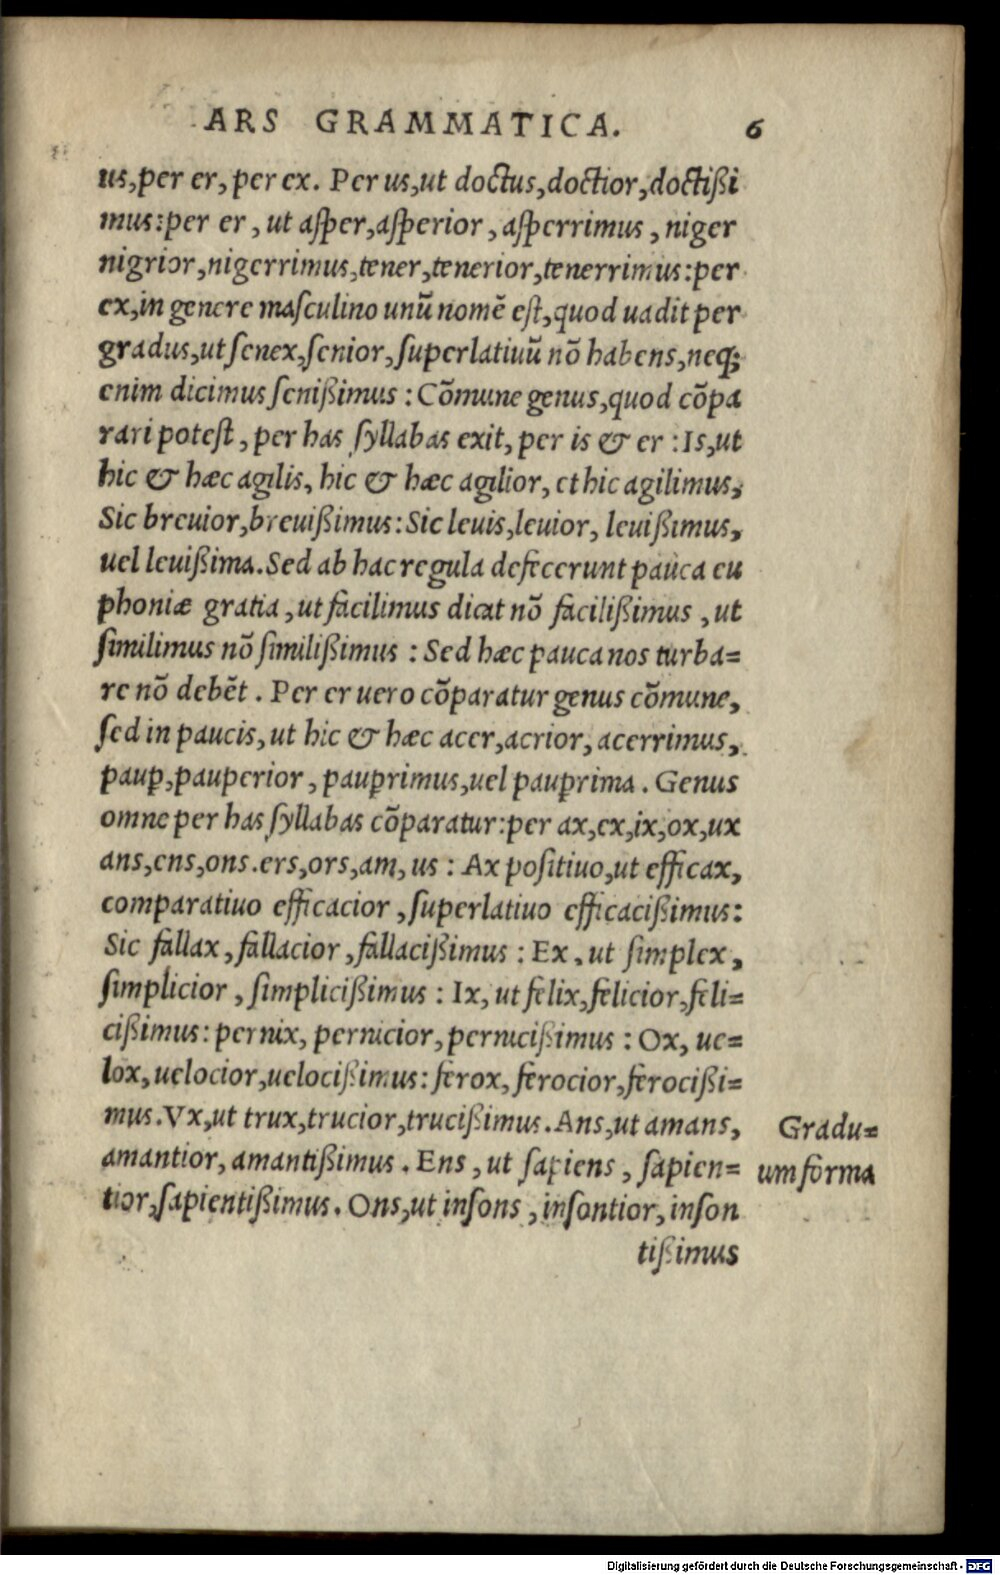 ARS GRAMMATICA. 6
us,per er, per ex. Per us,ut doctus,doctior,doctißi
mus:per er, ut asper,asperior, asperrimus, niger
nigrior,nigerrimus,tener,tenerior,tenerrimus:per
ex,in genere masculino unū nomē est,quod uadit per
gradus,ut senex,senior,superlatiuū nō habens,neq;
enim dicimus senißimus: Cōmune genus,quod cōpa
rari potest, per has syllabas exit, per is & er: Is,ut
hic & hæc agilis, hic & hæc agilior, et hic agilimus,
Sic breuior,breuißimus: Sic leuis,leuior, leuißimus,
uel leuißima. Sed ab hac regula defecerunt pauca eu
phoniæ gratia, ut facilimus dicat nō facilißimus, ut
similimus nō similißimus: Sed hæc pauca nos turba=
re nō debēt. Per er uero cōparatur genus cōmune,
sed in paucis, ut hic & hæc acer,acrior, acerrimus,
paup̱,pauperior, paup̱rimus,uel paup̱rima. Genus
omne per has syllabas cōparatur:per ax,ex,ix,ox,ux
ans,ens,ons.ers,ors,am, us: Ax positiuo,ut efficax,
comparatiuo efficacior, superlatiuo efficacißimus:
Sic fallax, fallacior, fallacißimus: Ex, ut simplex,
simplicior, simplicißimus: Ix, ut felix,felicior,feli=
cißimus: pernix, pernicior, pernicißimus: Ox, ue=
lox, uelocior,uelocißimus: ferox, ferocior,ferocißi=
mus. Vx,ut trux,trucior,trucißimus. Ans,ut amans,
amantior, amantißimus. Ens, ut sapiens, sapien=
tior,sapientißimus. Ons,ut insons, insontior, inson
tißimus
Gradu=
um forma
Digitalisierung gefördert durch die Deutsche Forschungsgemeinschaft - DFG